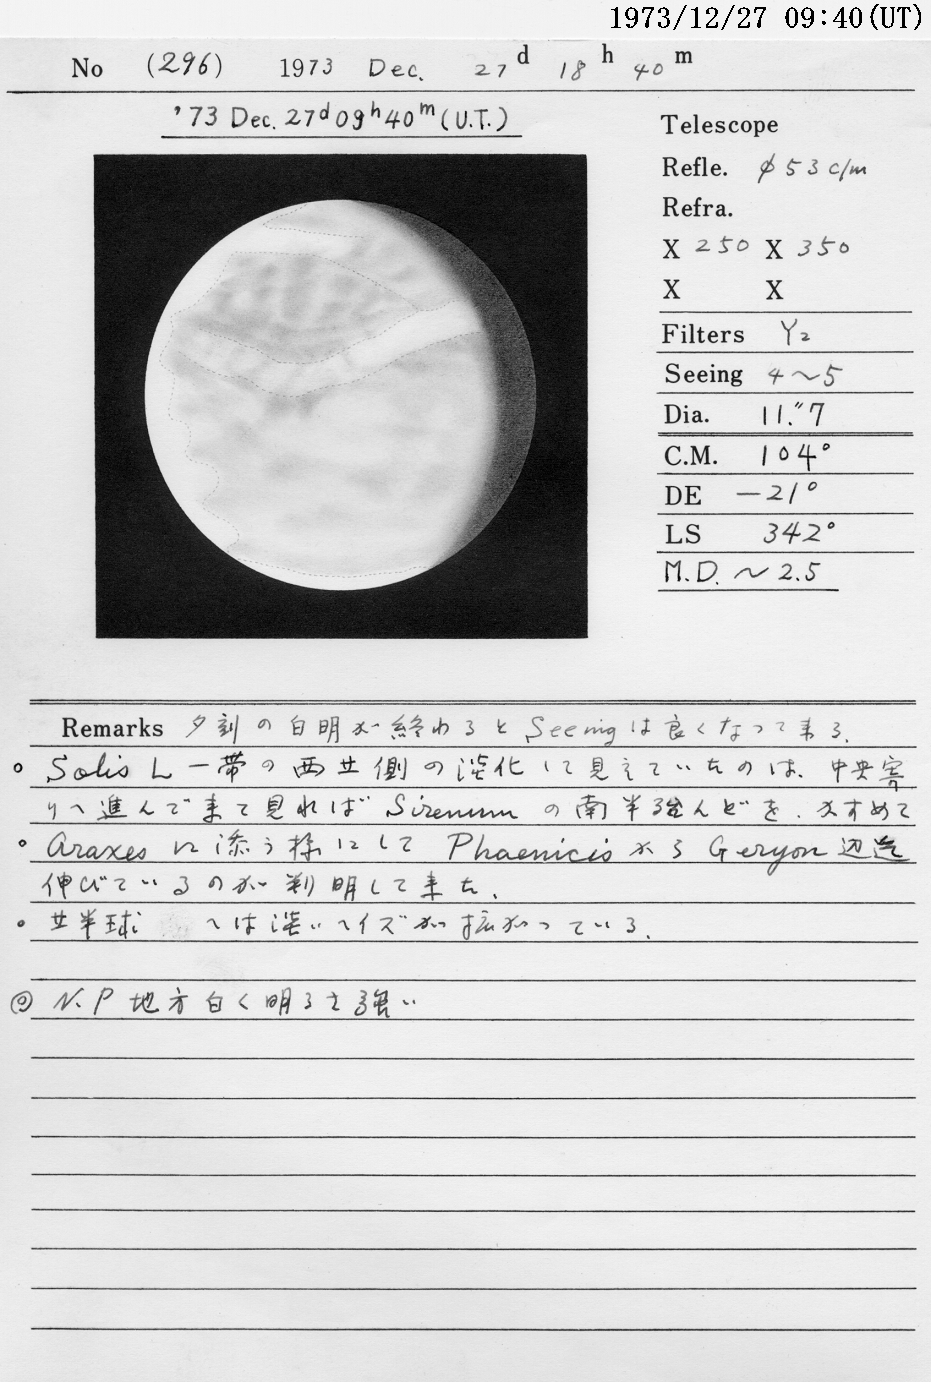 1973/12/27 09:40(UT)
No (296) 1973 Dec. 27d 18h 40m
'73 Dec. 27d 09h 40m (U.T.)
Telescope
Refle. φ 53 c/m
Refra.
X 250 X 350
X X
Filters Y2
Seeing 4～5
Dia. 11."7
C.M. 104°
DE －21°
LS 342°
M.D. ～2.5
Remarks 夕刻の白明が終わるとSeeingは良くなって来る.
○ Solis L 一帯の西北側の淡化して見えていたのは、中央寄
りへ進んで来て見れば Sirenum の南半強んどを、かすめて
○ Araxes に添う様にして Phaenicisから Geryon 辺迄
伸びているのが判明して来た.
○ 北半球 へは淡いヘイズが拡がっている.
◎ N.P 地方白く明るさ強い